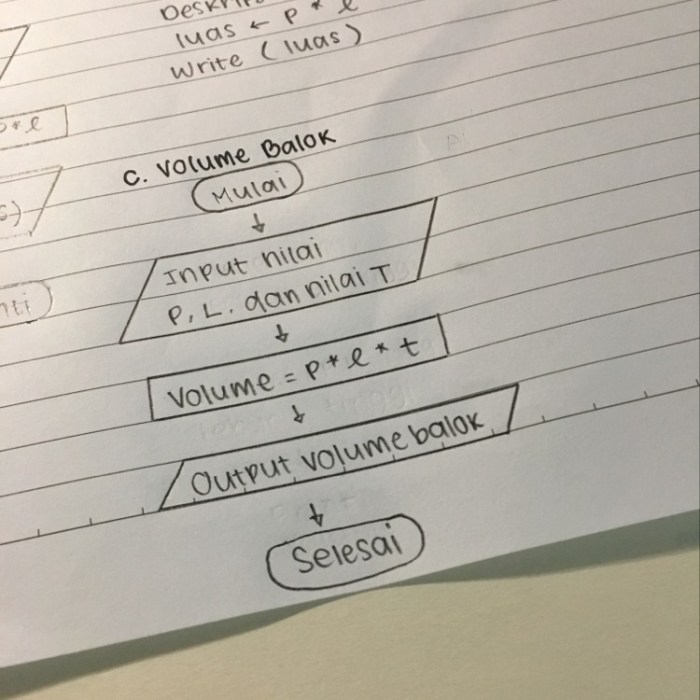 luas ← p * l
Write (luas)
C. Volume Balok
Mulai
Input nilai
P, L. dan nilai T
Volume = p * l * t
Output volume balok
Selesai